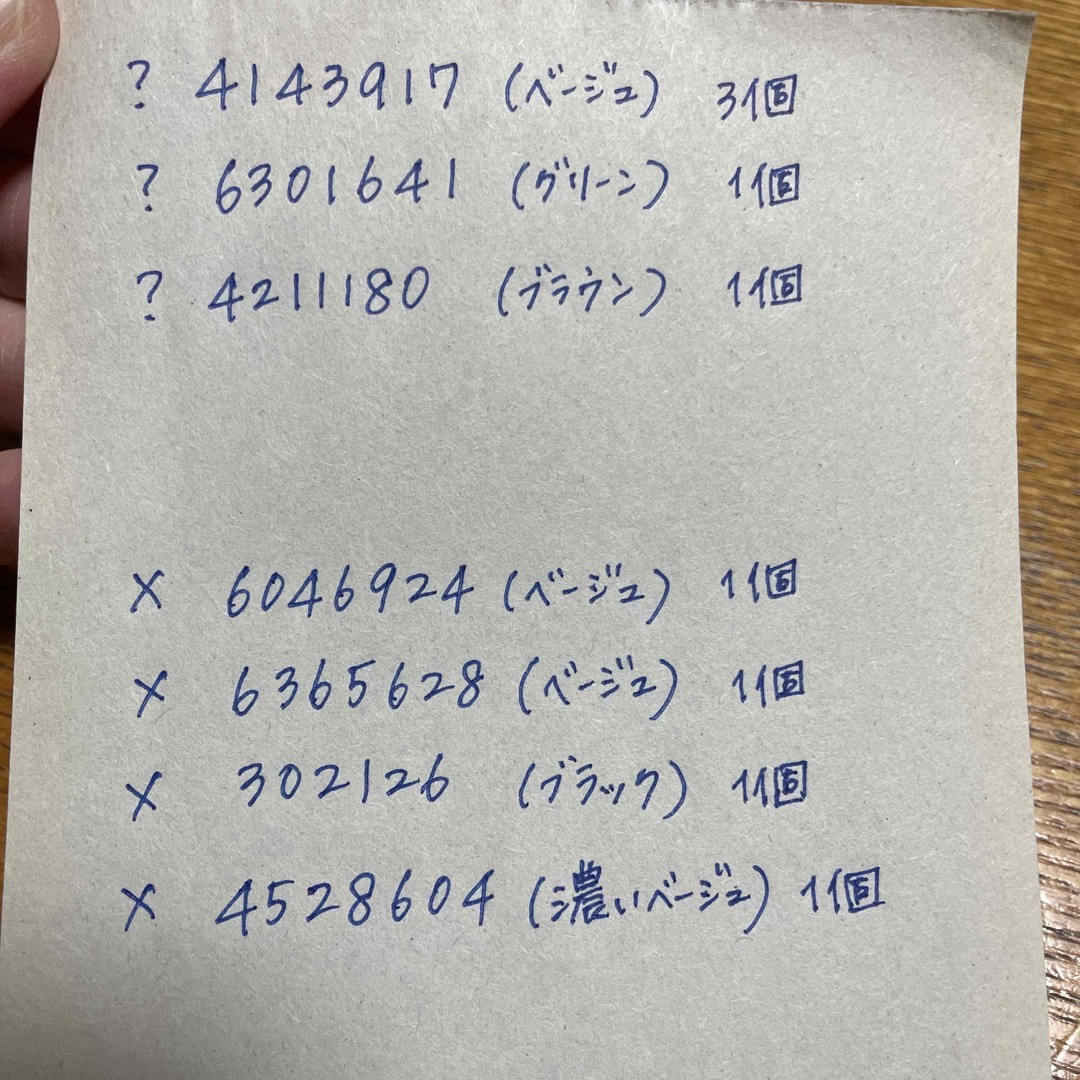 ? 4143917 (ベージュ) 3個
? 6301641 (グリーン) 1個
? 4211180 (ブラウン) 1個
× 6046924 (ベージュ) 1個
× 6365628 (ベージュ) 1個
× 302126 (ブラック) 1個
× 4528604 (濃いベージュ) 1個